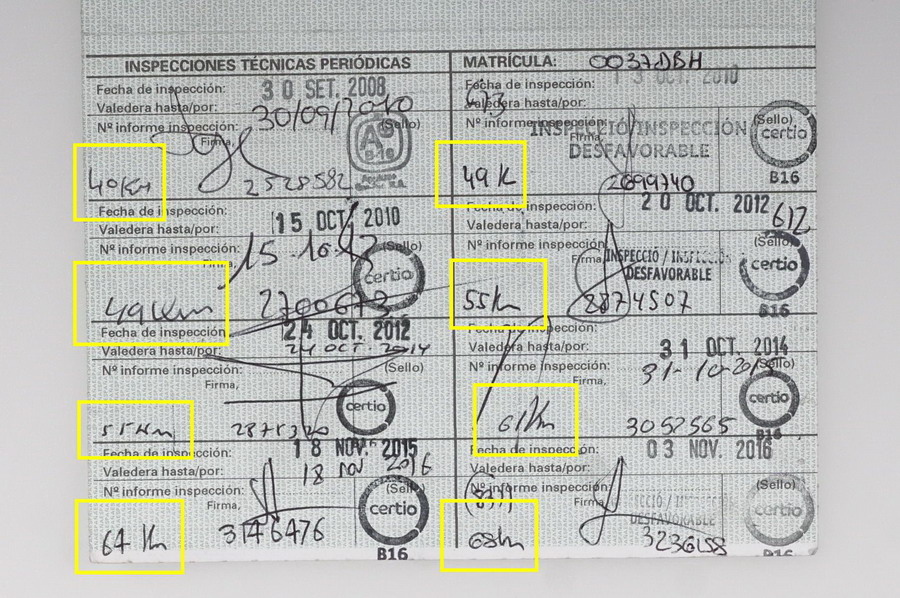 INSPECCIONES TÉCNICAS PERIÓDICAS
Fecha de inspección: 30 SET. 2008
Valedera hasta/por: 30/09/2010
Nº informe inspección: (Sello)
Firma,
40Km 2528582
Fecha de inspección: 15 OCT. 2010
Valedera hasta/por: 15.10.12
Nº informe inspección: (Sello)
Firma,
certio
49Km 2700673
Fecha de inspección 24 OCT. 2012
Valedera hasta/por: 24 OCT 2014
Nº informe inspección: (Sello)
Firma,
certio
55Km
Fecha de inspección: 18 NOV. 2015
Valedera hasta/por: 18 nov 2016
Nº informe inspección: (Sello)
Firma,
certio
64 Km 3146476
B16
MATRÍCULA: 0037DBH
Fecha de inspección: 13 OCT. 2010
Valedera hasta/por:
Nº informe inspección: (Sello)
Firma,
INSPECCIÓ/INSPECCIÓN
DESFAVORABLE
certio
B16
49 K 2699740
Fecha de inspección: 20 OCT. 2012
Valedera hasta/por: 612
Nº informe inspección: (Sello)
Firma, INSPECCIÓ / INSPECCIÓN
DESFAVORABLE
certio
B16
55Km 2874507
Fecha de inspección:
Valedera hasta/por: 31 OCT. 2014
Nº informe inspección: (Sello)
Firma,
certio
B16
61Km 3052565
Fecha de inspección: 03 NOV. 2016
Valedera hasta/por:
Nº informe inspección: (Sello)
Firma,
DESFAVORABLE
certio
68km
B16